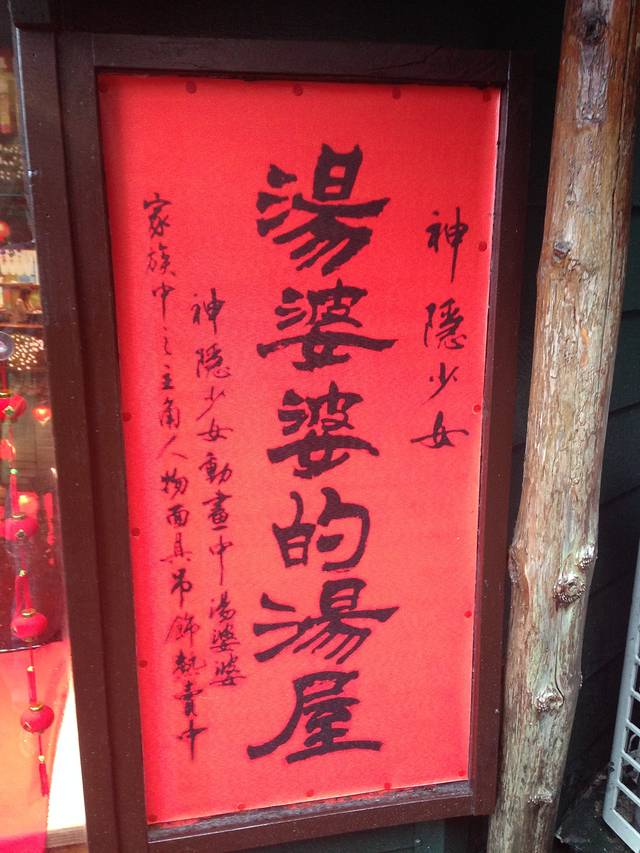 神隱少女
湯婆婆的湯屋
神隱少女動畫中湯婆婆
家族中之主角人物面具吊飾熱賣中